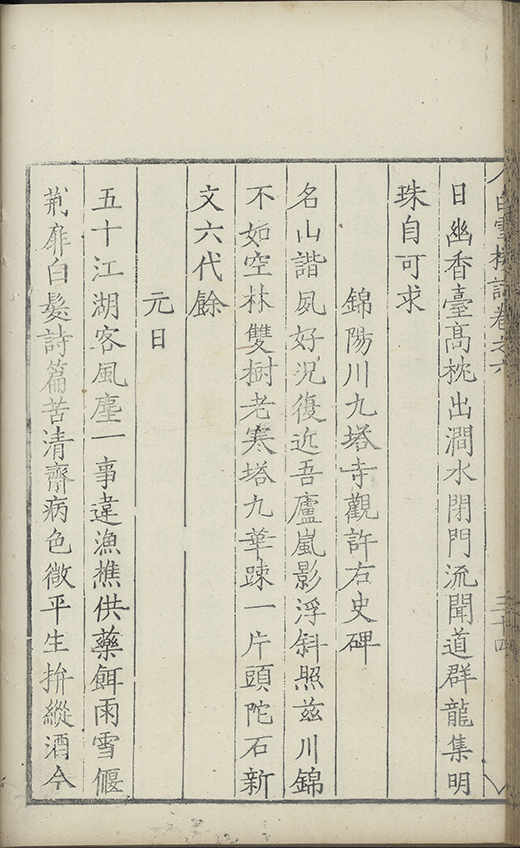 白雪樓詩卷之六 三十四
日幽香臺高枕出澗水閉門流聞道群龍集明
珠自可求
錦陽川九塔寺觀許右史碑
名山諧夙好況復近吾廬嵐影浮斜照茲川錦
不如空林雙樹老寒塔九華踈一片頭陀石新
文六代餘
元日
五十江湖客風塵一事違漁樵供藥餌雨雪偃
荊扉白髮詩篇苦清齊病色微平生拚縱酒今